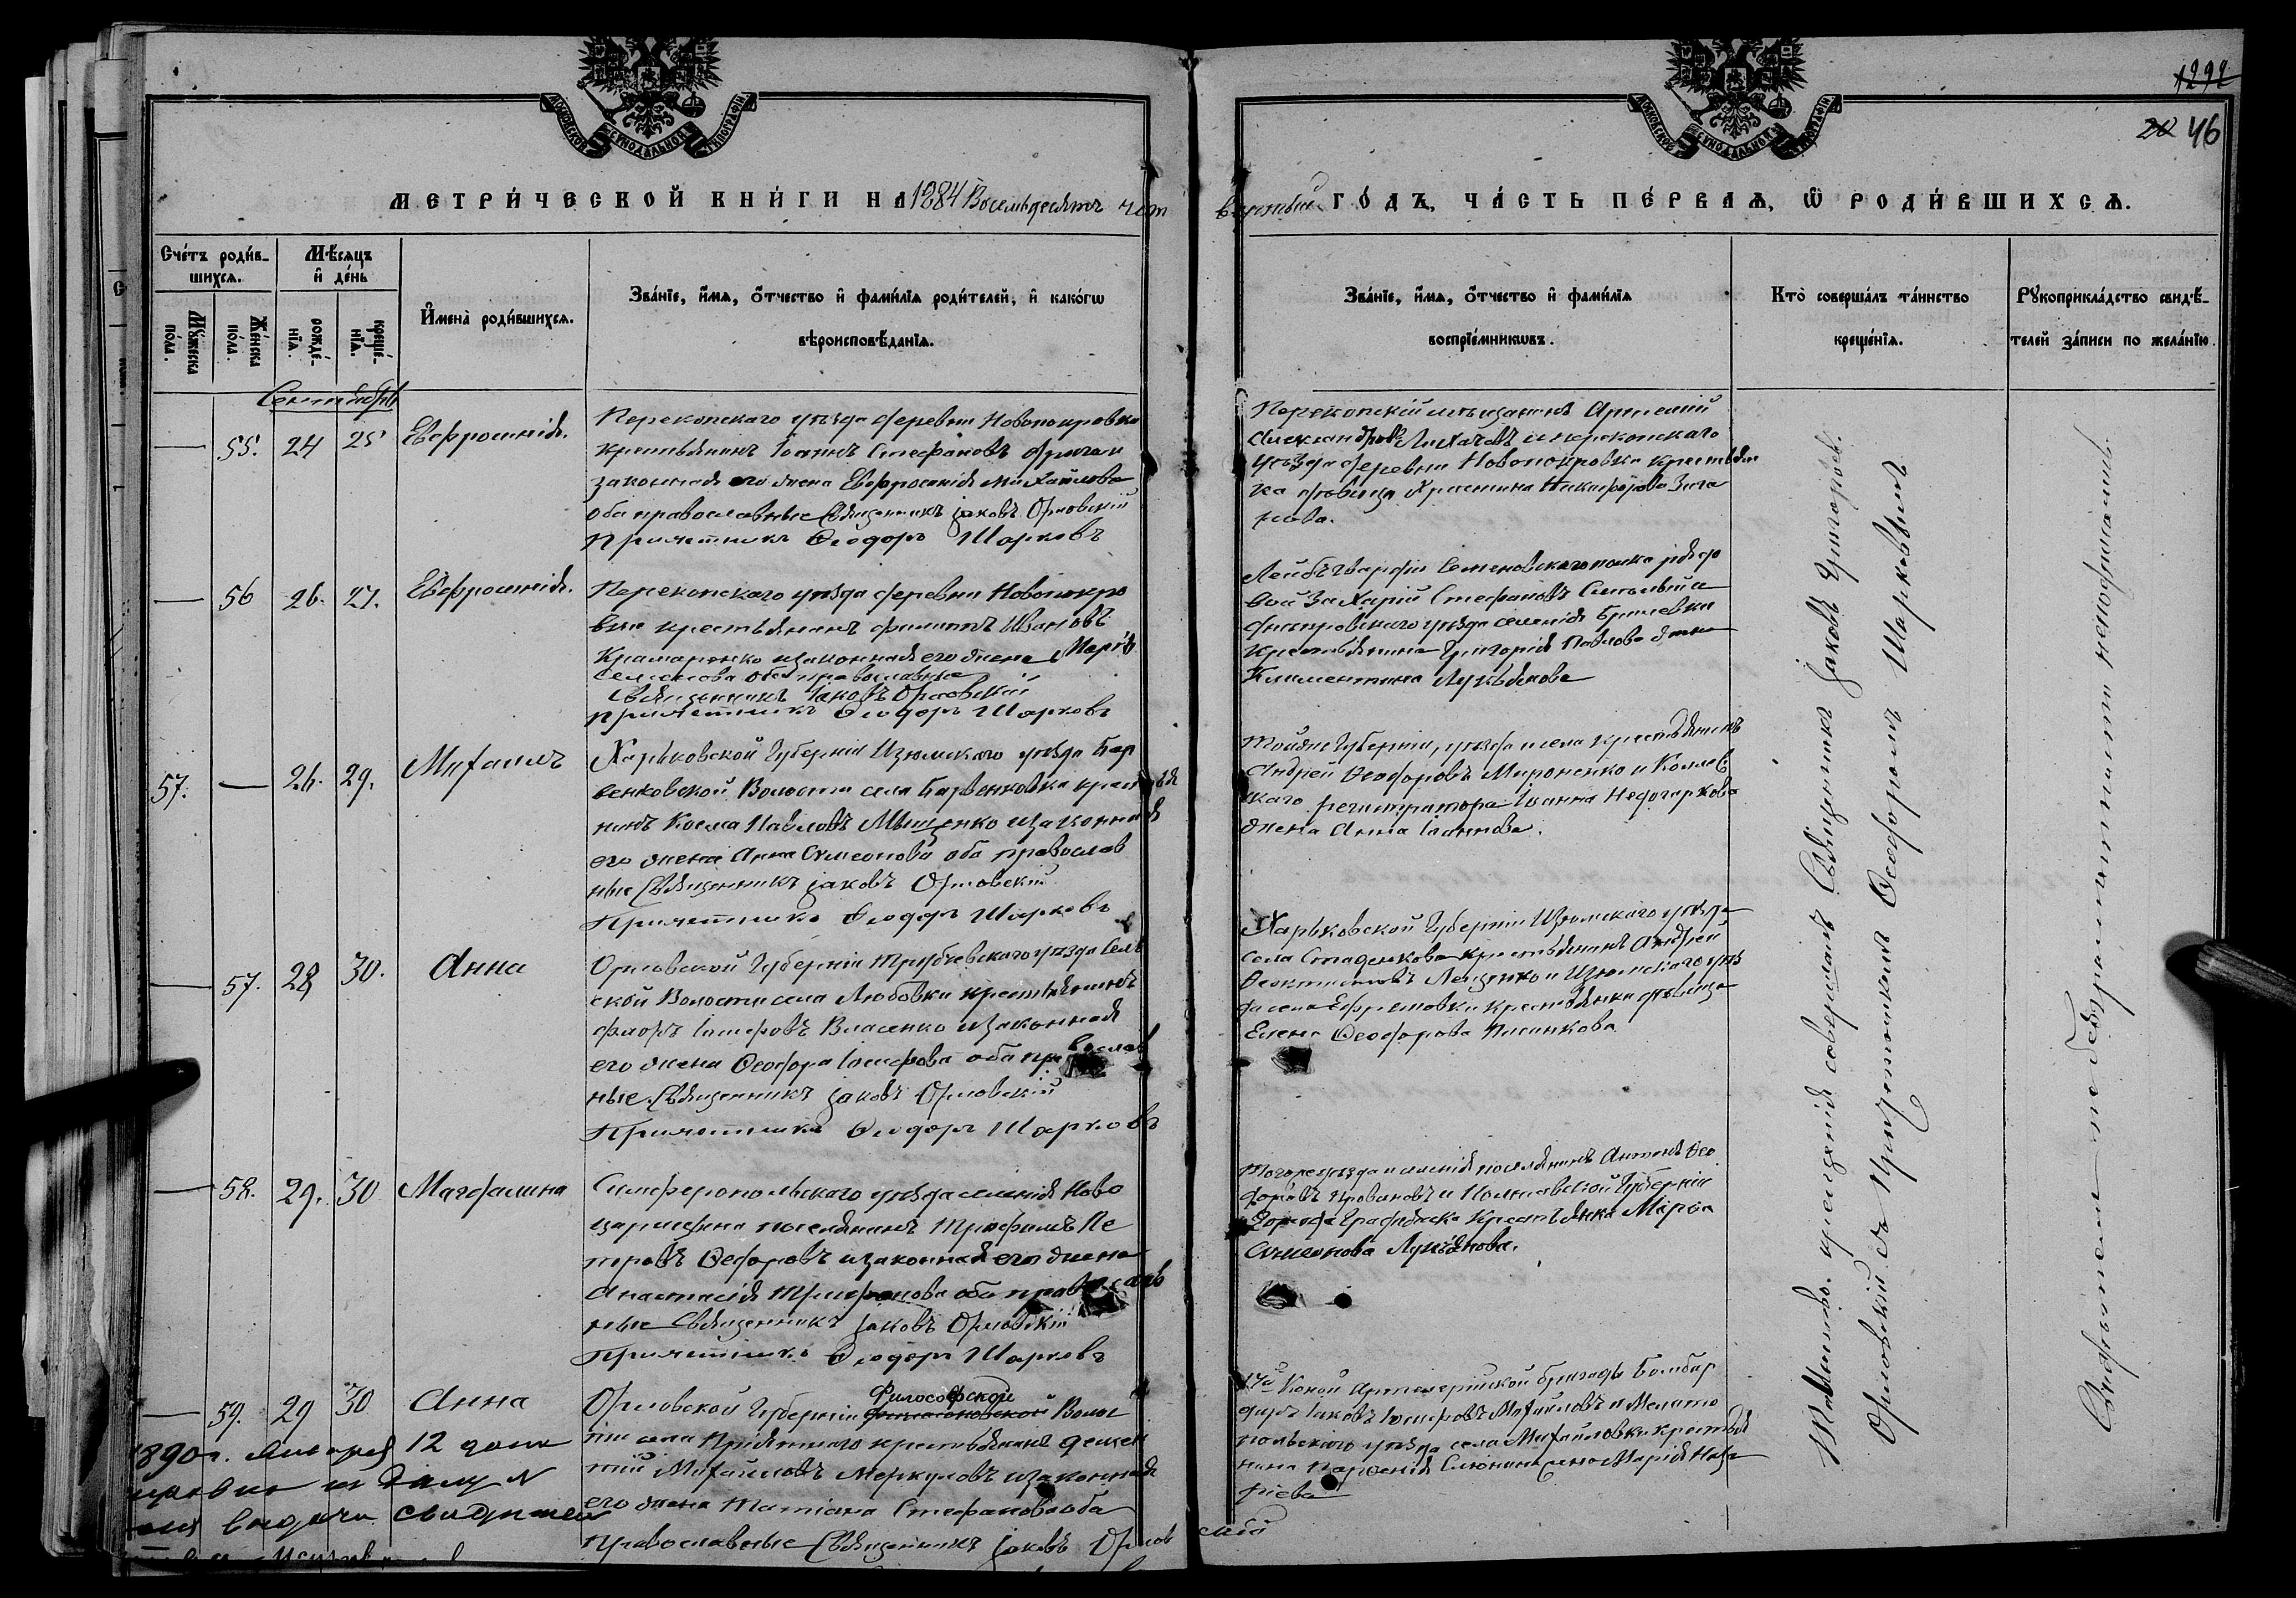 1292
20 46
МОСКОВСКОЙ СѴНОДАЛЬНОЙ ТИПОГРАФІИ.
МОСКОВСКОЙ СѴНОДАЛЬНОЙ ТИПОГРАФІИ.
МЕТРИ́ЧЕСКОЙ КНИ́ГИ НА 1884 Восемьдесятъ чет
вертый ГО́ДЪ, ЧА́СТЬ ПЕ́РВАѦ, Ѽ РОДИ́ВШИХСѦ.
Сче́тъ роди́в-
шихсѧ.
Мꙋ́жеска по́ла.
Же́нска по́ла.
Мѣ́сѧцъ
и҆ де́нь
рожде́-
нїѧ.
креще́-
нїѧ.
И҆мена̀ роди́вшихсѧ.
Зва́нїе, и҆́мѧ, ѻ҆́тчество и҆ фами́лїѧ роди́телей, и҆ како́гѡ
вѣроисповѣ́данїѧ.
Зва́нїе, и҆́мѧ, ѻ҆́тчество и҆ фами́лїѧ
воспрїе́мникѡвъ.
Кто̀ соверша́лъ та́инство
креще́нїѧ.
Рꙋкоприкла́дство свидѣ́-
телей за́писи по жела́нїю.
Сентябрь
— 55. 24 25 Евфросинія.
Перекопскаго уѣзда деревни Новопокровки
крестьянинъ Іоаннъ Стефановъ
законная его жена Евфросинія Михайлова
оба православные Священникъ Іаковъ Орловскій
Причетникъ Ѳеодоръ Шарковъ
Перекопскій мѣщанинъ Артемій
Александровъ Лихачевъ и перекопскаго
уѣзда деревни Новопокровки крестьян
ка дѣвица Христина Никифорова
— 56 26. 27. Евфросинія.
Перекопскаго уѣзда деревни Новопокро
вки крестьянинъ Филиппъ Ивановъ
Крамаренко и законная его жена Марія
Семенова оба православные
Священникъ Іаковъ Орловскій
Причетникъ Ѳеодоръ Шарковъ
Лейбъ гвардіи Семеновскаго полка рядо
вой Захарій Стефановъ
днепровскаго уѣзда селенія Брилевки
крестьянина Григорія Павлова жена
Климентина Лукьянова
57. — 26. 29. Михаилъ
Харьковской Губерніи Изюмскаго уѣзда Бар
венковской Волости села Барвенковки крестья
нинъ Косма Павловъ Мищенко и законная
его жена Анна Симеонова оба православ
ные Священникъ Іаковъ Орловскій
Причетникъ Ѳеодоръ Шарковъ
Тойже Губерніи, уѣзда и села крестьянинъ
Андрей Ѳеодоровъ Мироненко и Коллеж
скаго регистратора Іоанна Недогаркова
жена Анна Іоаннова.
— 57. 28 30. Анна
Орловской Губерніи Трубчевскаго уѣзда Сел
ской Волости села Любовки крестьянинъ
Флоръ Іосифовъ Власенко и законная
его жена Ѳеодора Іосифова оба православ
ные Священникъ Іаковъ Орловскій
Причетникъ Ѳеодоръ Шарковъ
Харьковской Губерніи Изюмскаго уѣзда
села Стаденкова крестьянинъ Андрей
Ѳеоктистовъ Лещенко и Изюмскаго уѣз
да села Ефремовки крестьянка дѣвица
Елена Ѳеодорова
— 58. 29. 30 Магдалина
Симферопольскаго уѣзда селенія Ново
царицына поселянинъ Трофимъ Пе
тровъ Ѳедоровъ и законная его жена
Анастасія Трифонова оба православ
ные Священникъ Іаковъ Орловскій
Причетникъ Ѳеодоръ Шарковъ
Тогоже уѣзда и селенія поселянинъ Антонъ Ѳео
доровъ и Полтавской Губерніи
Города Градижска Крестьянка Марія
Симеонова Лукьянова.
— 59. 29 30 Анна
Философской
Орловской Губерніи Волос
ти села Пріятнаго крестьянинъ Демен
тій Михайловъ Меркуловъ и законная
его жена Татіана Стефанова оба
православные Священникъ Іаковъ Орлов
скій
17й Конной Артилерійской бригады Бомбар
диръ Іаковъ Іосифовъ Михайловъ и Мелито
польскаго уѣзда села Михайловки крестья
нина Парфенія жена Марія
1890 г. Января 12 дня
выдачи свидѣтель
Таинство крещенія совершалъ Священникъ Іаковъ Григорьевъ
Орловскій съ Причетникомъ Ѳеодоромъ Шарковымъ
Свидѣтелями по безграмотности неподписались.